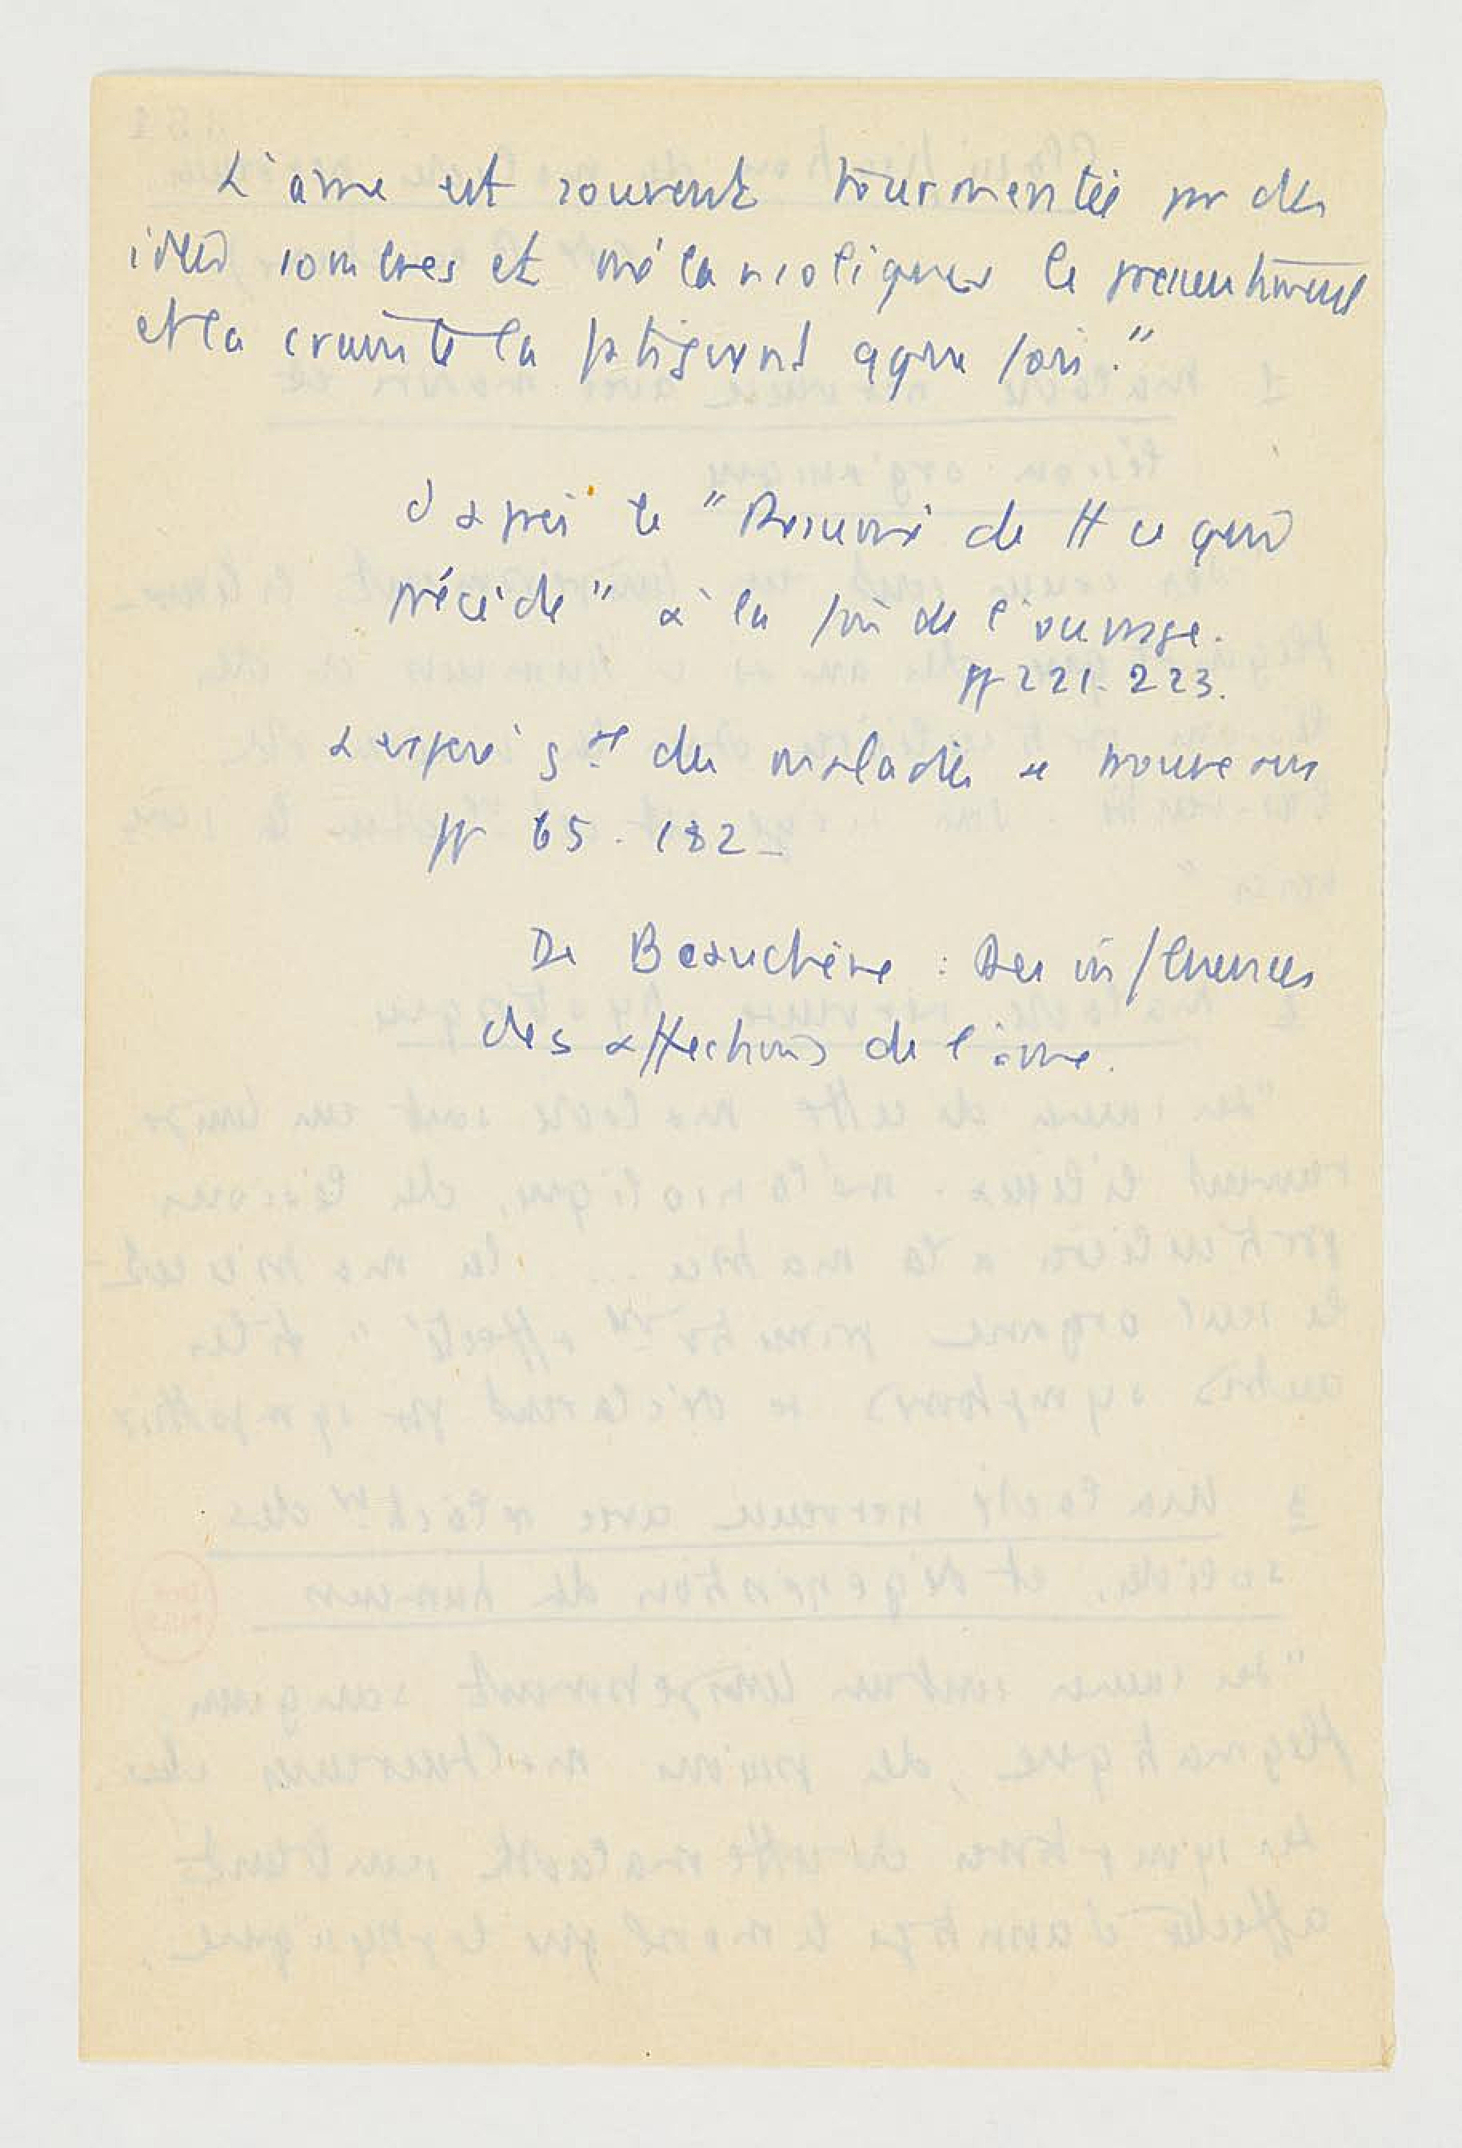 L'âme est souvent tourmentée par des
idées sombres et mélancoliques le pressentiment
et la crainte la fatiguent
d'après le "Résumé de tt ce qui
précède" à la fin de l'ouvrage.
pp 221-223.
des maladies se trouve
pp 65-182
De Beauchène : Des influences
des affections de l'âme.